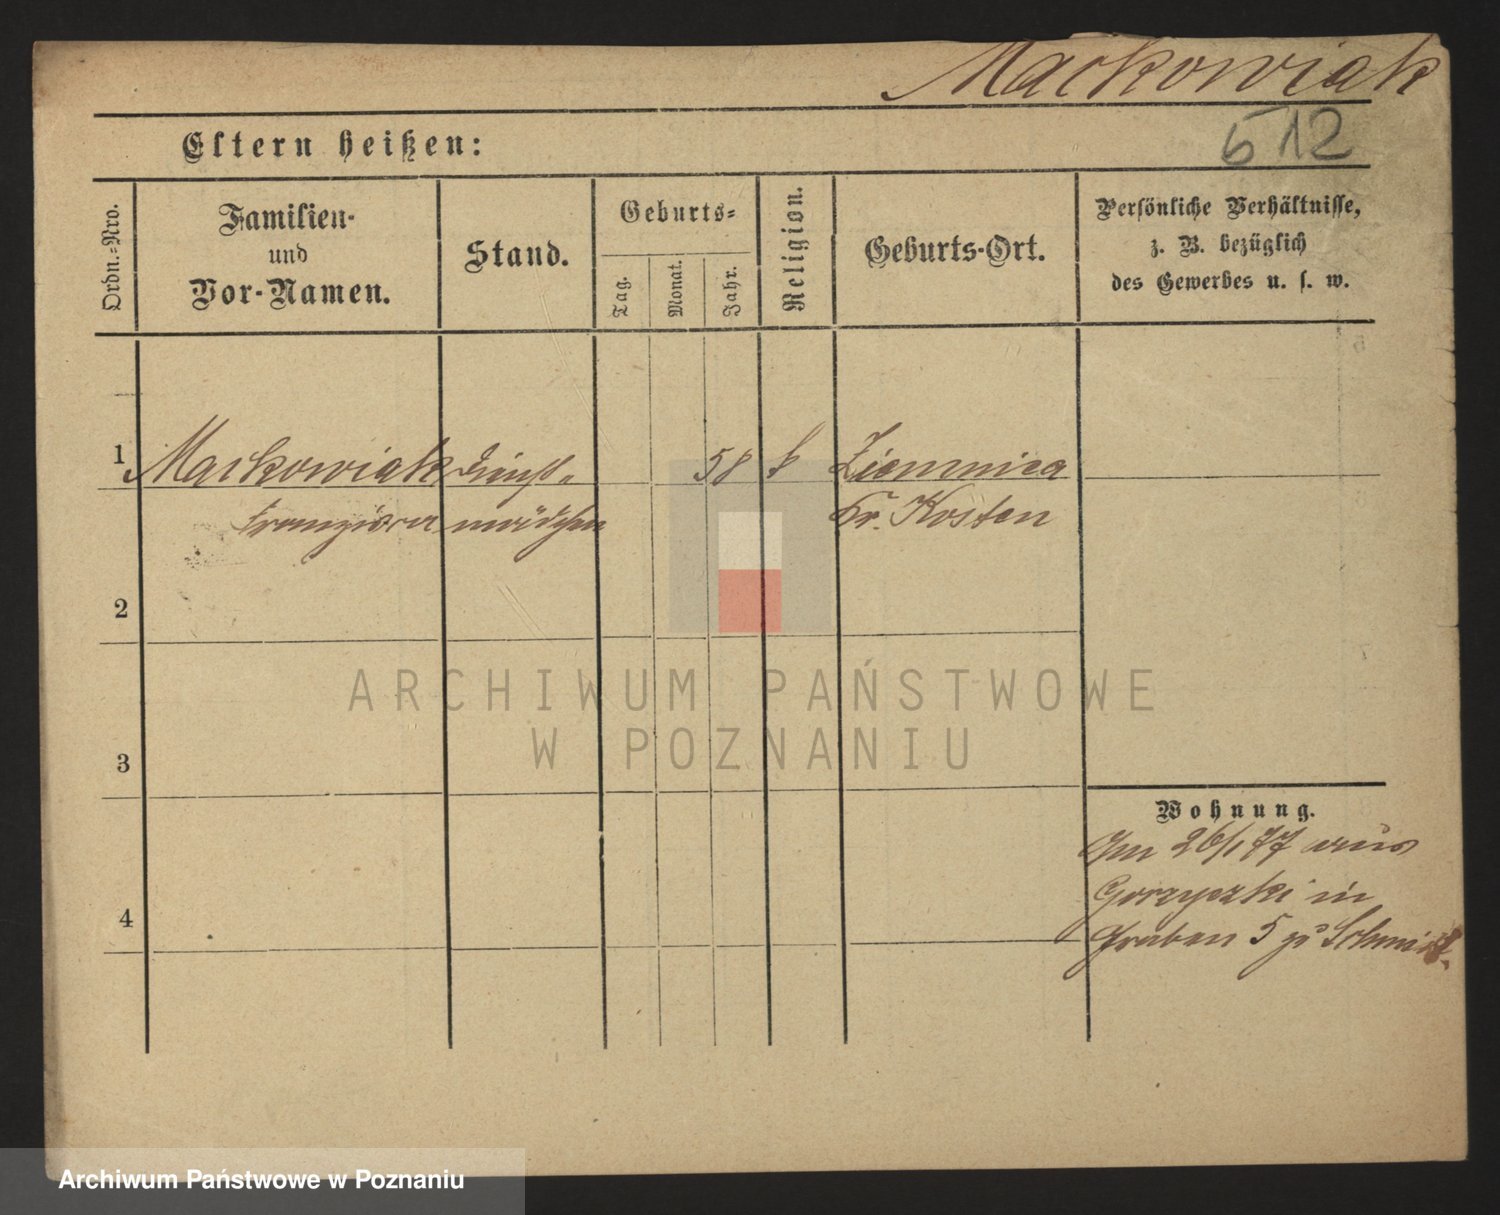 Mackowiak
512
Eltern heißen:
Ordn.-Nro.
Familien-
und
Vor-Namen.
Stand.
Geburts-
Tag.
Monat.
Jahr.
Religion.
Geburts-Ort.
Persönliche Verhältnisse,
z. B. bezüglich
des Gewerbes u. s. w.
1 Mackowiak Dienst- 58 k Ziemnica
Franziska mädchen Kr. Kosten
2
3
4
Wohnung.
Am 26/1 77 aus
Gorzyczki in
Graben 5 zu Schmidt.
ARCHIWUM PAŃSTWOWE
W POZNANIU
Archiwum Państwowe w Poznaniu